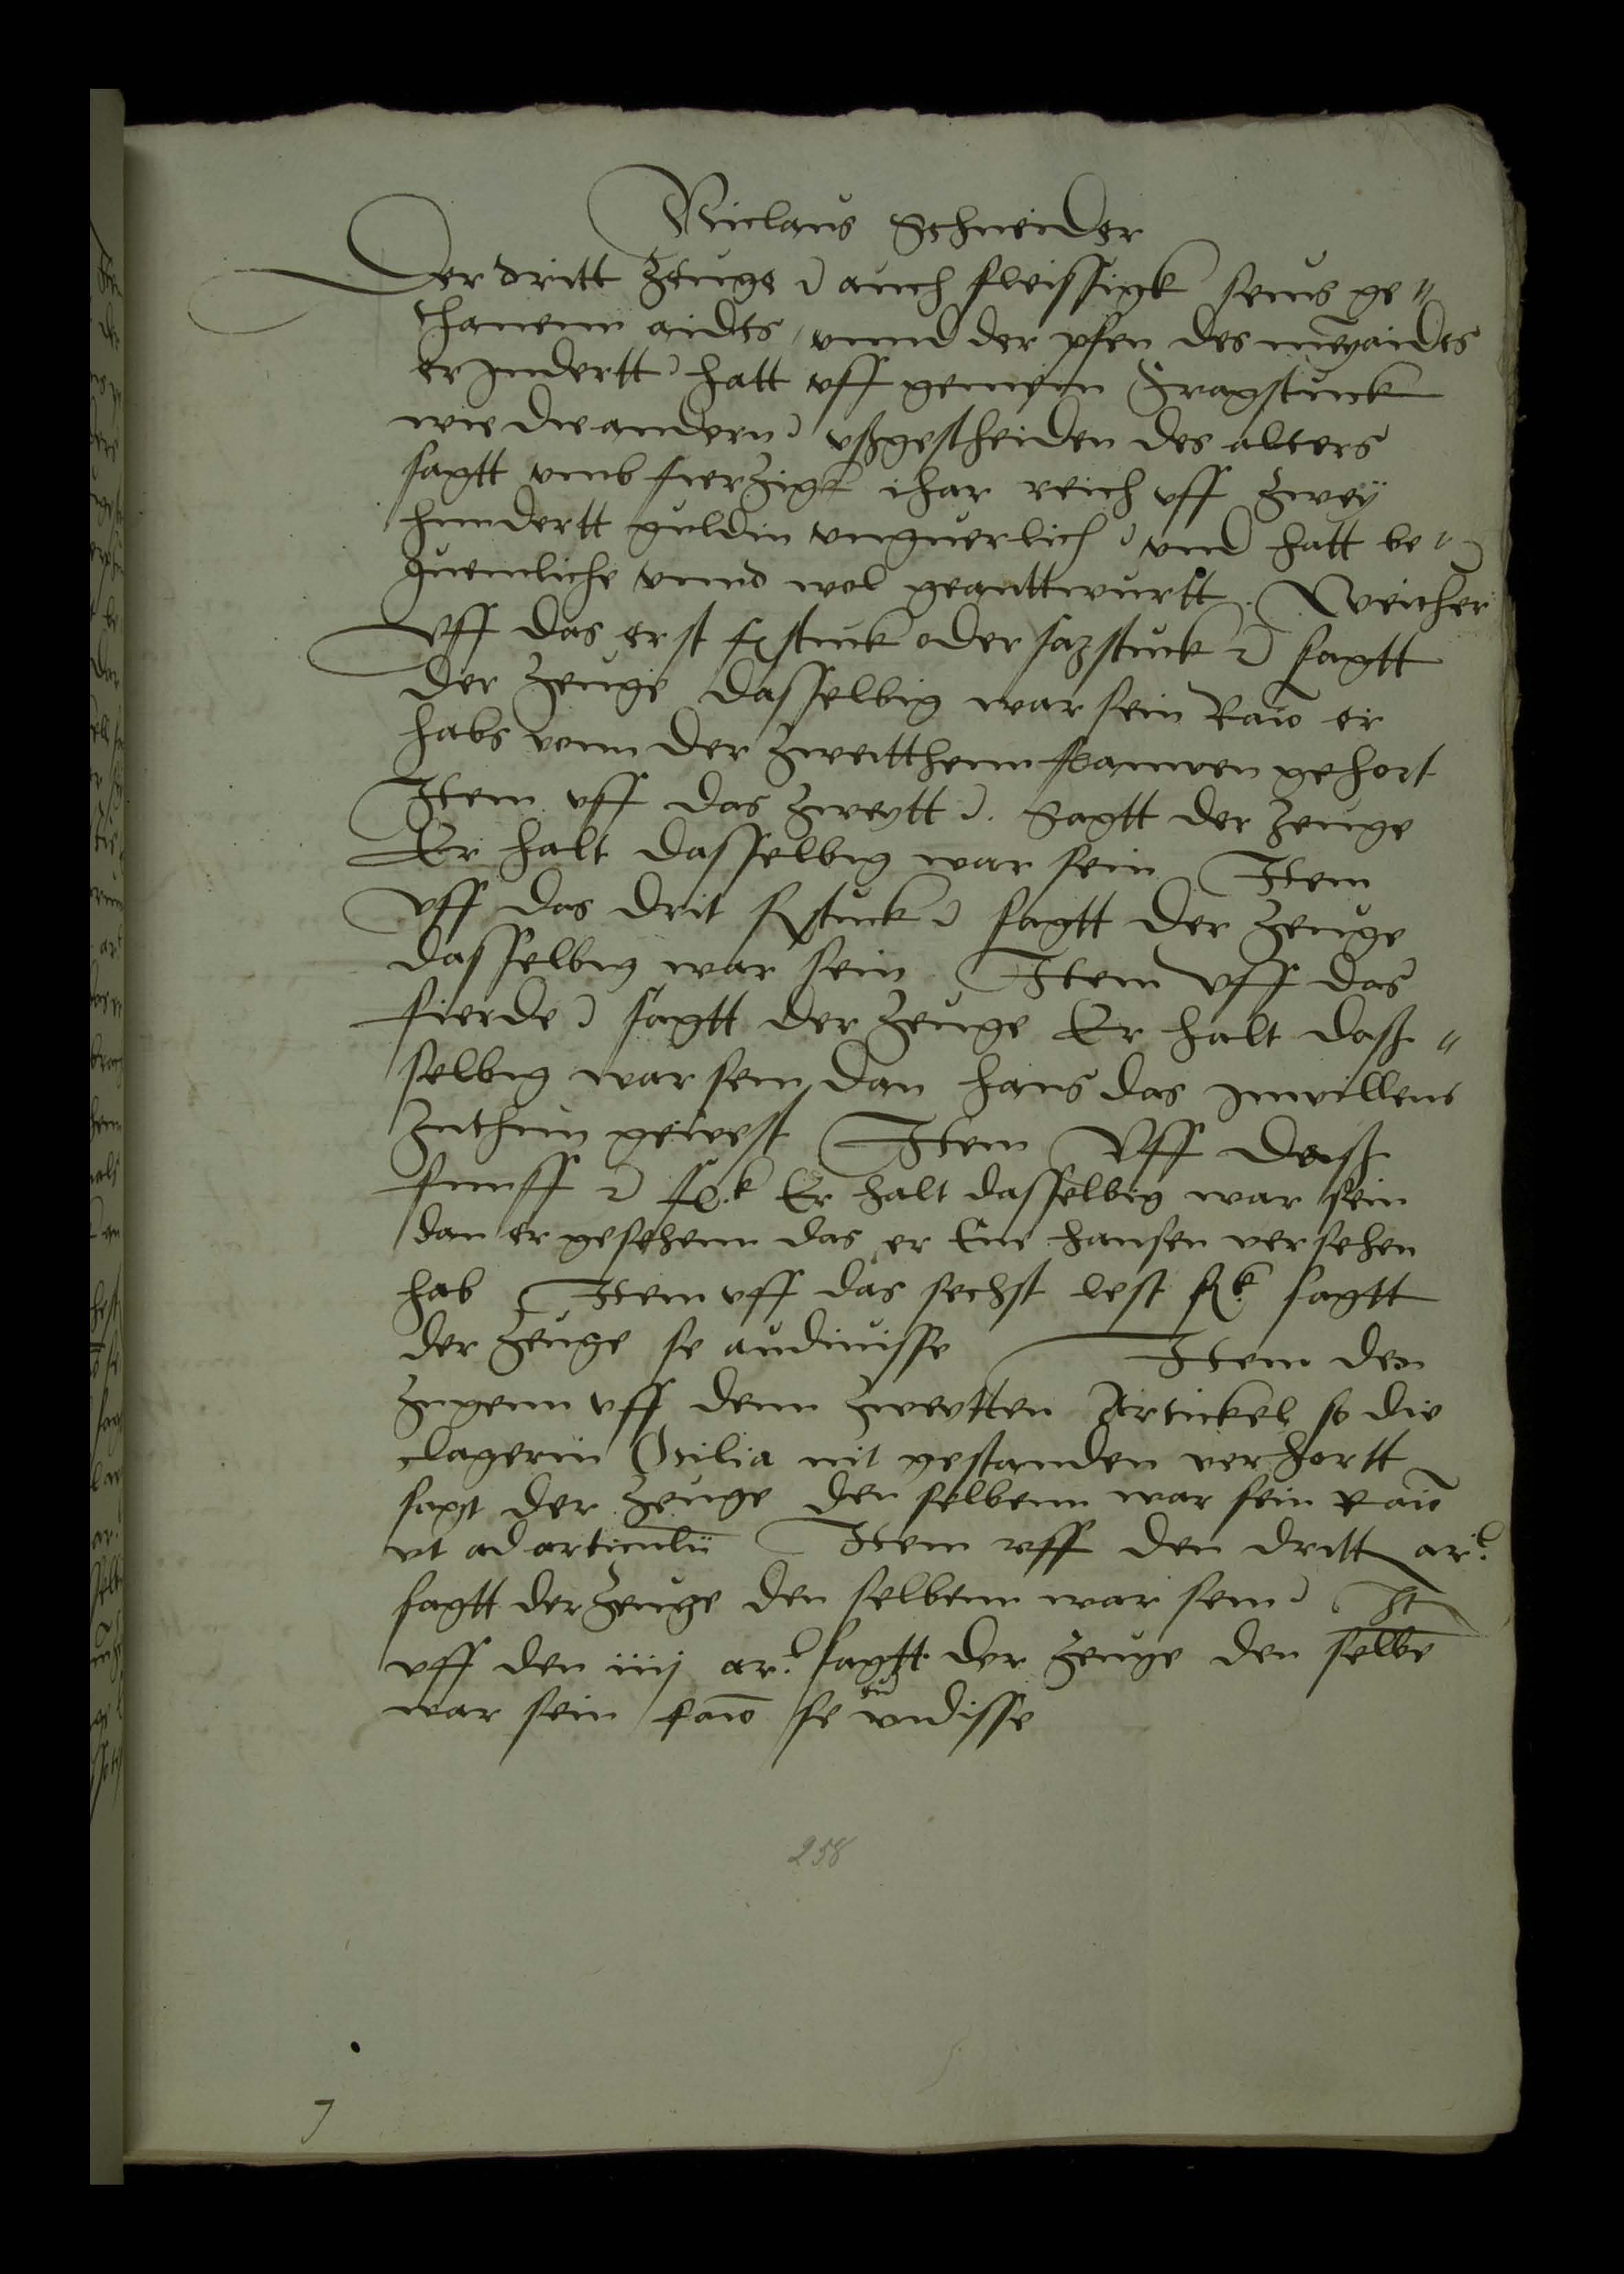 Niclaus Schneider
Der dritt Zeuge auch fleissigk seins ge„
thanenn aidts, vnnd der pfen des meyaides
erJndertt hatt vff gemein Fragstuck
wie die andern vßgescheiden des alters
sagtt vmb fierzigk ihar reich vff zwey
hundertt guldin vngeuerlich vnd hatt be„
quemliche vnnd wol geanttwurtt. Welcher
vff das erst fstuck oder sazstuck sagtt
der Zeuge dasselbig war sein rao er
habs vonn der zweitthenn frauwen gehort
Item vff das zweytt. Sagtt der Zeuge
Er halt dasselbig war sein Item
vff das drit fstuck sagtt der Zeuge
dasselbig war sein Item vff das
fierde sagtt der Zeuge Er halt daß„
selbig war sein, dan Hans das Jnwillens
zuthun gewest Item Vff daß
funff Er halt dasselbig war sein
dan er gesehenn das er hansen versehen
hab Item vff das sechst lest sagtt
der Zeuge se audiuisse Item den
Zugenn vff denn zweytten Artickel so die
clagerin Otilia nit gestanden verhortt
sagt der Zeuge den selbenn war sein rao
vt ad articulu Item vff den dritt ar.
sagtt der Zeuge den selbenn war sein It
vff den iiij ar. sagtt der Zeuge den selbe
war sein rao se vidisse
258